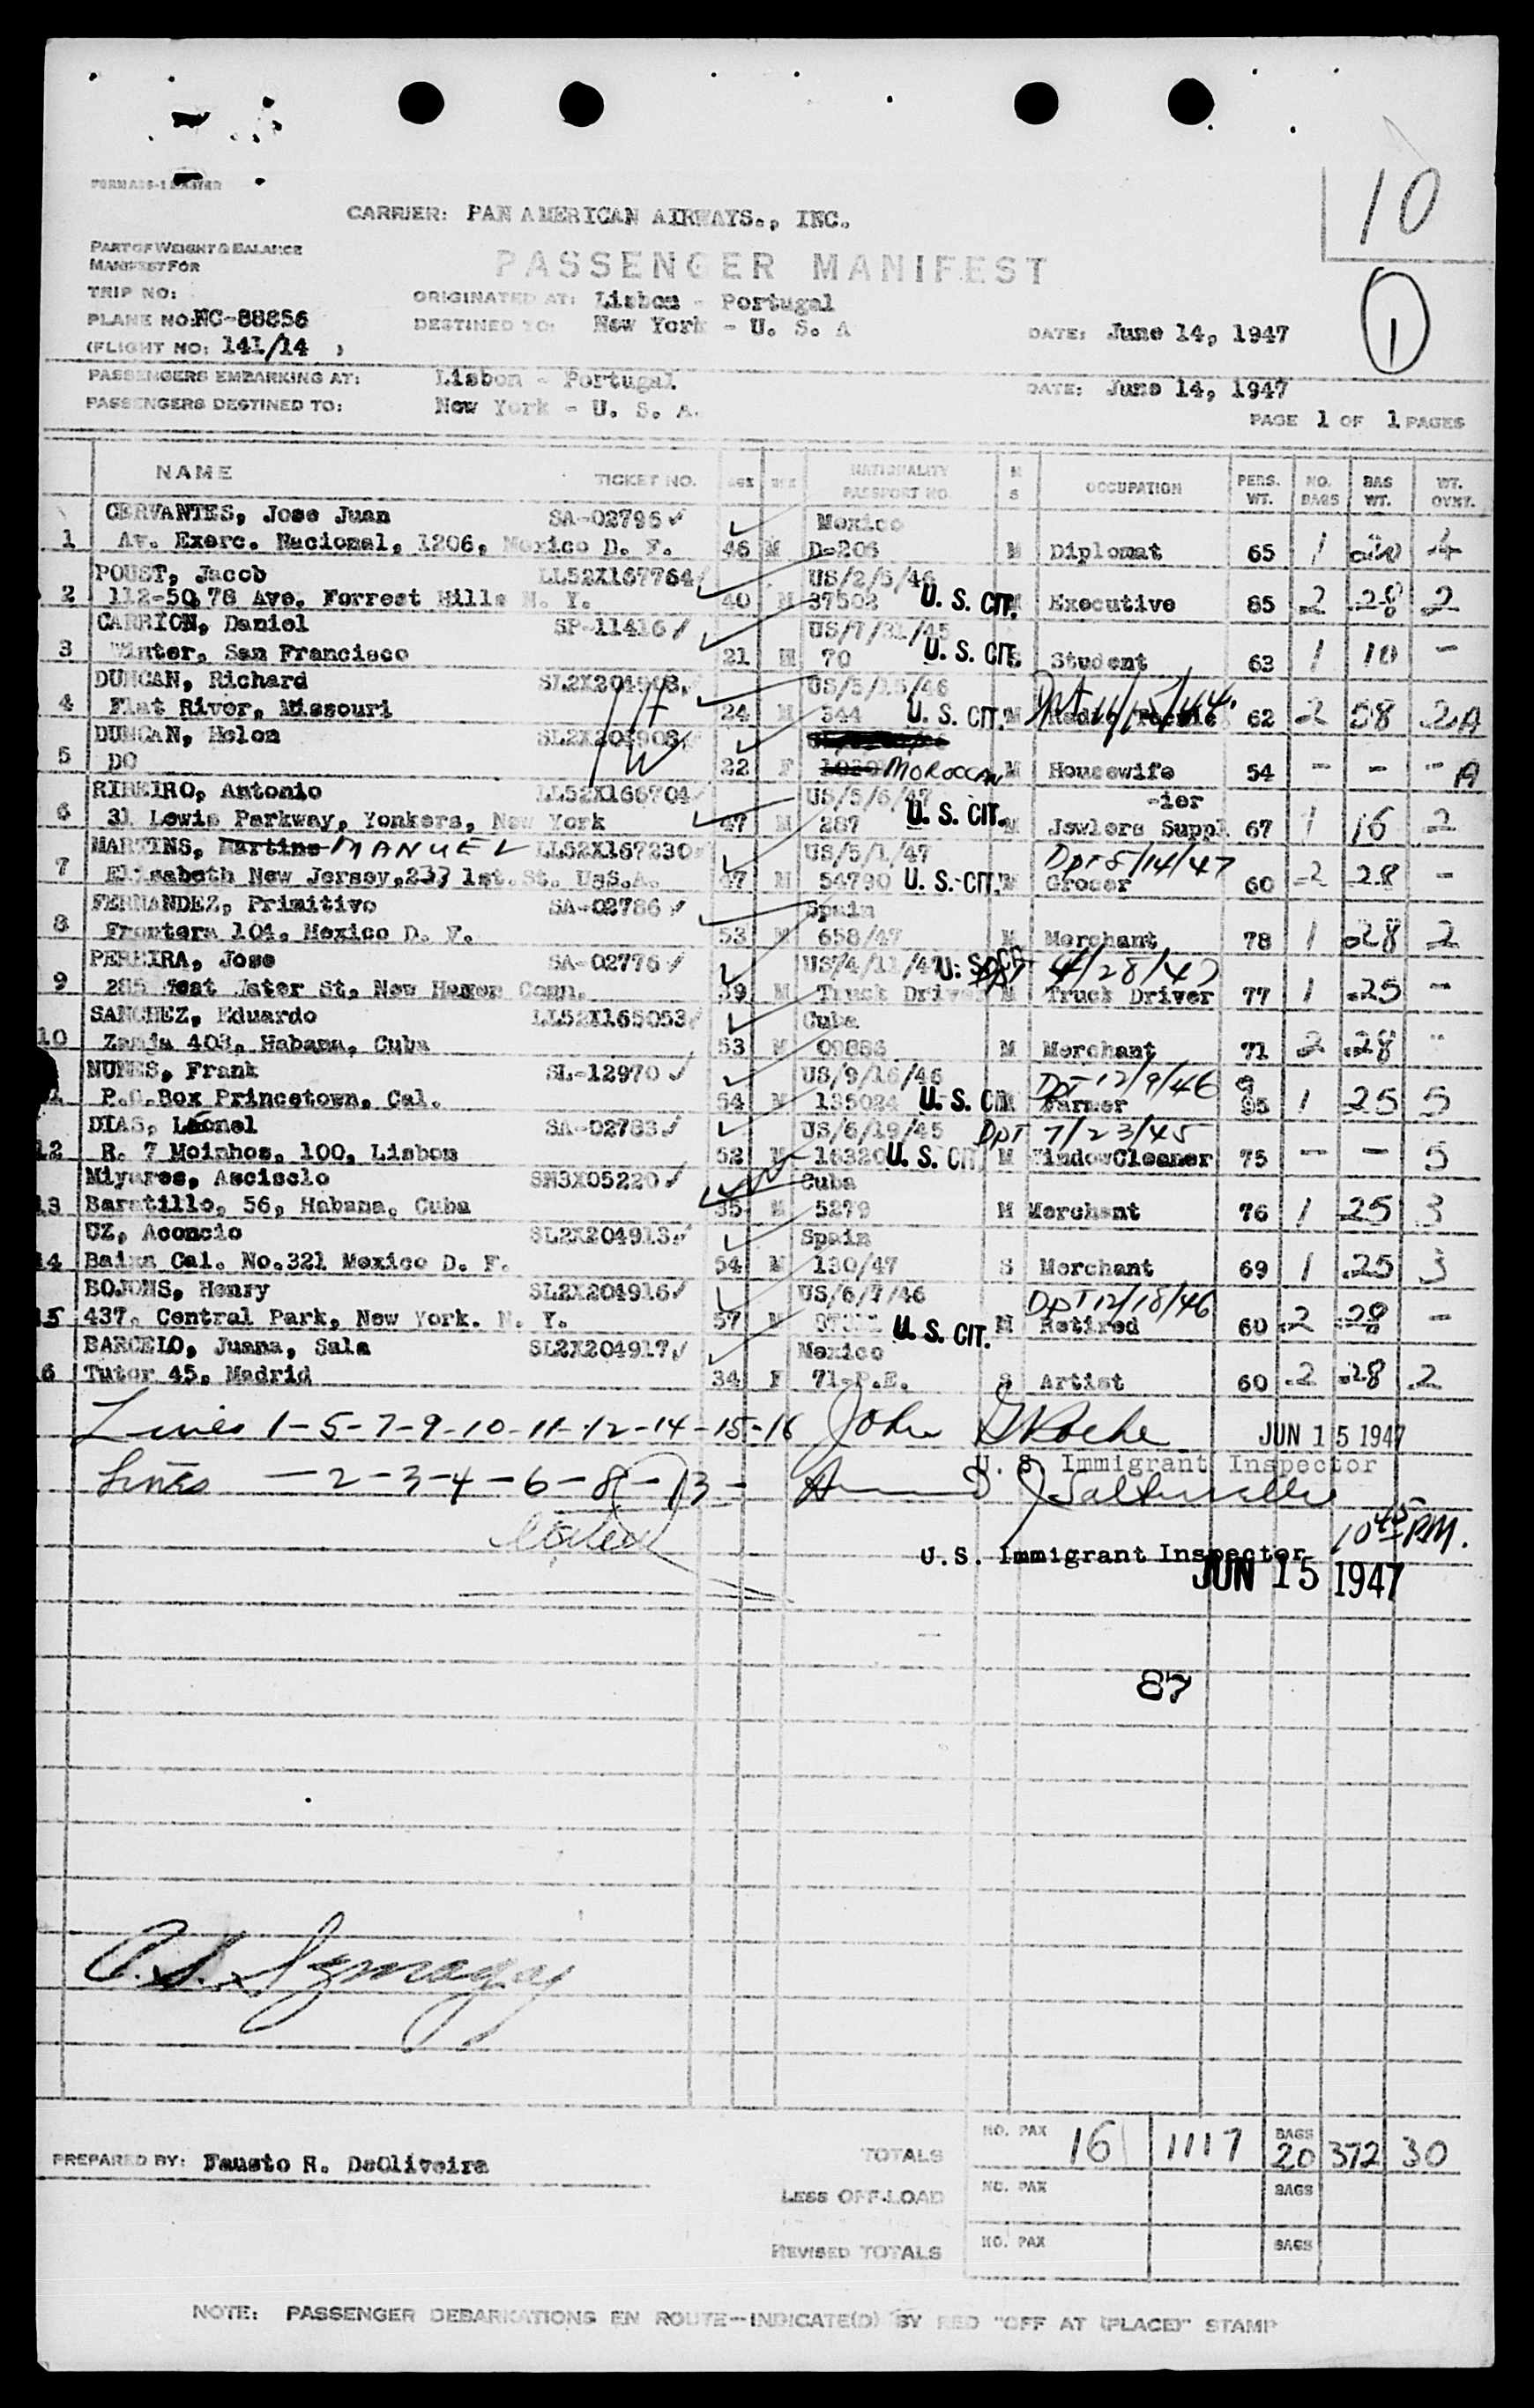 10
FORM ADS-1 MASTER
CARRIER: PAN AMERICAN AIRWAYS., INC.
PART OF WEIGHT & BALANCE
MANIFEST FOR
PASSENGER MANIFEST
1
TRIP NO:
ORIGINATED AT: Lisbon - Portugal
PLANE NO: NC-88856
DESTINED TO: New York - U. S. A
DATE: June 14, 1947
(FLIGHT NO: 141/14 )
PASSENGERS EMBARKING AT: Lisbon - Portugal
DATE: June 14, 1947
PASSENGERS DESTINED TO: New York - U. S. A.
PAGE 1 OF 1 PAGES
NAME TICKET NO. AGE SEX NATIONALITY PASSPORT NO. M S OCCUPATION PERS. WT. NO. BAGS BAG WT. WT. OVRT.
CERVANTES, Jose Juan SA-02795 Mexico
1 Av. Exerc. Nacional, 1206, Mexico D. F. 46 M D-206 M Diplomat 65 1 4
POUST, Jacob LL52X167764 US/2/5/46
2 112-50 78 Ave. Forrest Hills N. Y. 40 M 37502 U. S. CIT. Executive 85 2 28 2
CARRION, Daniel SP-11416 US/7/31/45
3 Winter, San Francisco 21 M 70 U. S. CIT. S Student 63 1 10 -
DUNCAN, Richard US/5/15/46
4 Flat River, Missouri 24 M 544 U. S. CIT. M 62 2 58 2 A
DUNCAN, Helen
5 DO 22 F MOROCCAN M Housewife 54 - - - A
RIBEIRO, Antonio LL52X166704 US/5/6/47 -ier
6 31 Lewis Parkway, Yonkers, New York 47 M 287 U. S. CIT. M Jewlers Suppl 67 1 16 2
MARTINS, Martins MANUEL LL52X167230 US/5/1/47 Dpt 5/14/47
7 Elisabeth New Jersey, 233 1st. St. UsS.A. 47 M 54790 U. S. CIT. M Grocer 60 2 28 -
FERNANDEZ, Primitivo SA-02786 Spain
8 Frontera 104, Mexico D. F. 53 M 658/47 M Merchant 78 1 28 2
PEREIRA, Jose SA-02776 US/4/11/47 U. S. CIT. DPT 4/28/47
9 285 West Water St, New Haven Conn. 39 M Truck Driver M Truck Driver 77 1 25 -
SANCHEZ, Eduardo LL52X165053 Cuba
10 Zanja 403, Habana, Cuba 53 M 09886 M Merchant 71 2 28 -
NUNES, Frank SL-12970 US/9/16/46 DPT 12/9/46
P.O.Box Princetown, Cal. 54 M 135024 U. S. CIT. Farmer 95 1 25 5
DIAS, Leonel SA-02783 US/6/19/45 DPT 7/23/45
12 R. 7 Moinhos, 100, Lisbon 52 M 16320 U. S. CIT. M WindowCleaner 75 - - 5
Miyares, Ascisclo SM3X05220 Cuba
13 Baratillo, 56, Habana, Cuba 35 M 5279 M Merchant 76 1 25 3
UZ, Aconcio SL2X204913 Spain
14 Baixa Cal. No.321 Mexico D. F. 54 M 130/47 S Merchant 69 1 25 3
BOJONS, Henry SL2X204916 US/6/7/46 DPT 12/18/46
15 437, Central Park, New York. N. Y. 57 M U. S. CIT. M Retired 60 2 28 -
BARCELO, Juana, Sala SL2X204917 Mexico
6 Tutor 45, Madrid 34 F 71-P.E. S Artist 60 2 28 2
Lines 1-5-7-9-10-11-12-14-15-16 John G Roche JUN 15 1947
U. S. Immigrant Inspector
Lines - 2-3-4-6-8-13-
10 45 P.M.
U.S. Immigrant Inspector
JUN 15 1947
87
PREPARED BY: Fausto R. DeOliveira
TOTALS NO. PAX 16 1117 BAGS 20 372 30
LESS OFF-LOAD NO. PAX BAGS
REVISED TOTALS NO. PAX BAGS
NOTE: PASSENGER DEBARKATIONS EN ROUTE-INDICATE(D) BY RED "OFF AT (PLACE)" STAMP